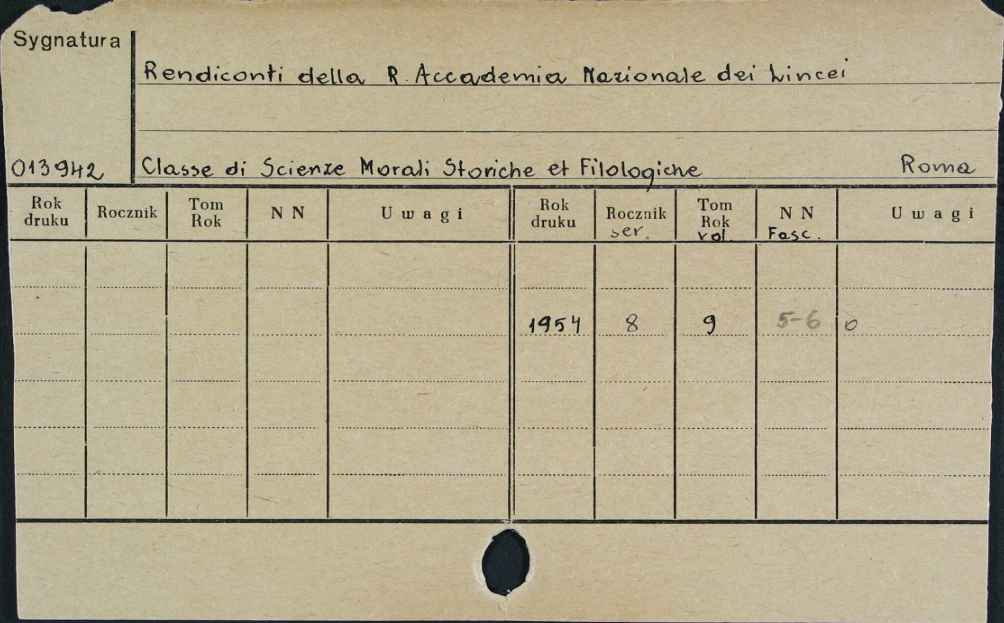 Sygnatura
Rendiconti della R. Accademia Nazionale dei Lincei
013942 Classe di Scienze Morali Storiche et Filologiche Roma
Rok druku Rocznik Tom Rok N N Uwagi Rok druku Rocznik ser. Tom Rok vol. N N Fasc. Uwagi
1954 8 9 5-6 0